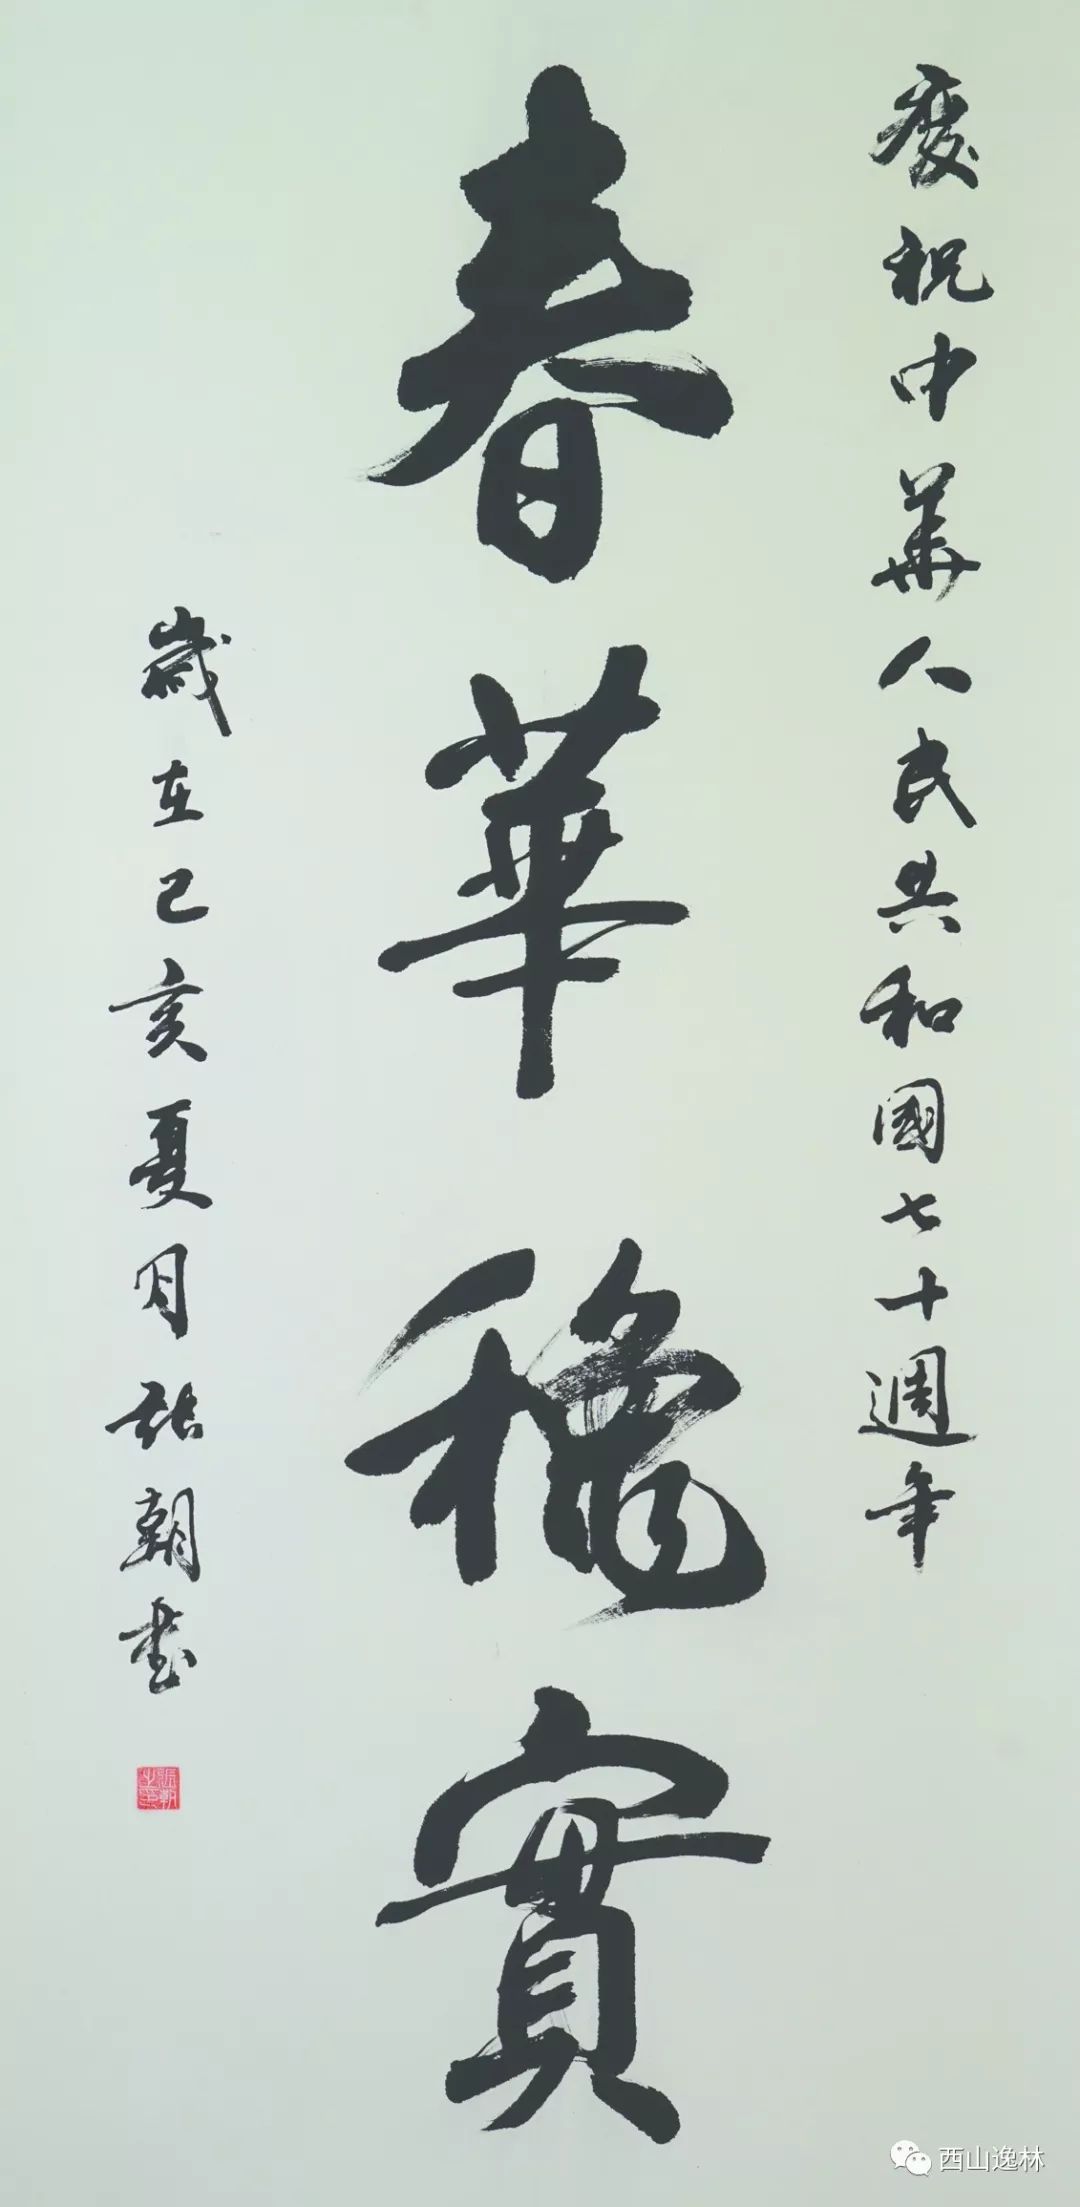 慶祝中華人民共和國七十週年
春華穐實
歲在己亥夏月張朝書
西山逸林